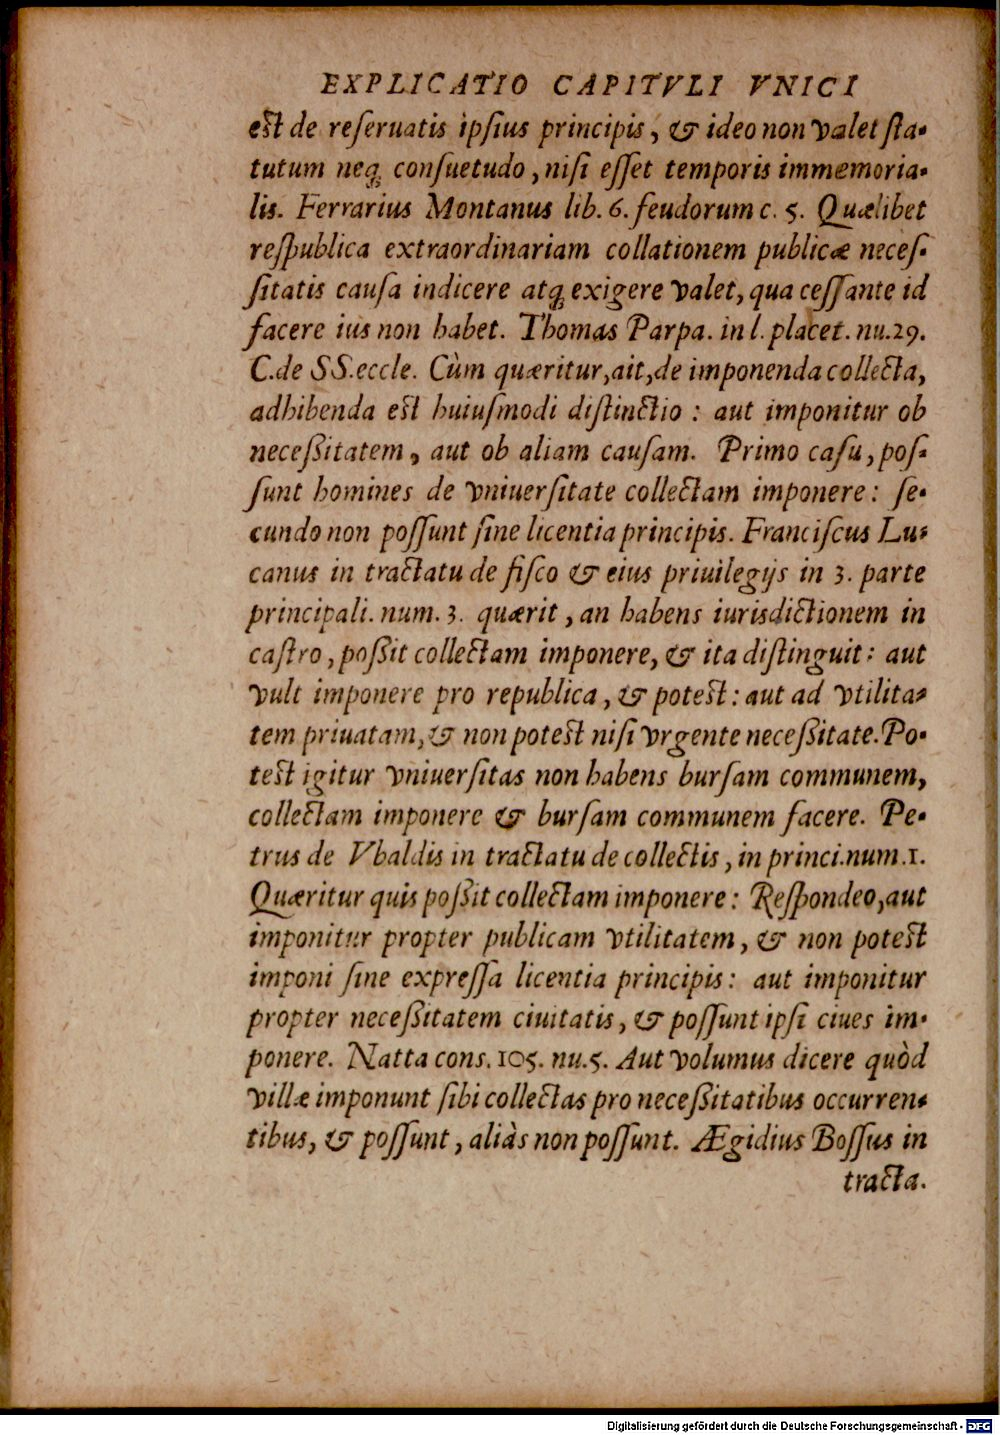 EXPLICATIO CAPITVLI VNICI
est de reſeruatis ipſius principis, & ideo non valet ſta-
tutum neq; conſuetudo, niſi eſſet temporis immemoria-
lis. Ferrarius Montanus lib. 6. feudorum c. 5. Quælibet
reſpublica extraordinariam collationem publicæ neceſ-
ſitatis cauſa indicere atq; exigere valet, qua ceſſante id
facere ius non habet. Thomas Parpa. in l. placet. nu.29.
C.de SS.eccle. Cùm quæritur,ait,de imponenda collecta,
adhibenda est huiuſmodi diſtinctio : aut imponitur ob
neceßitatem, aut ob aliam cauſam. Primo caſu, poſ-
ſunt homines de vniuerſitate collectam imponere: ſe-
cundo non poſſunt ſine licentia principis. Franciſcus Lu-
canus in tractatu de fiſco & eius priuilegijs in 3. parte
principali. num. 3. quærit, an habens iurisdictionem in
caſtro, poßit collectam imponere, & ita diſtinguit: aut
vult imponere pro republica, & potest: aut ad vtilita-
tem priuatam, & non potest niſi vrgente neceßitate. Po-
test igitur vniuerſitas non habens burſam communem,
collectam imponere & burſam communem facere. Pe-
trus de Vbaldis in tractatu de collectis, in princi.num.1.
Quæritur quis poßit collectam imponere: Reſpondeo,aut
imponitur propter publicam vtilitatem, & non potest
imponi ſine expreſſa licentia principis: aut imponitur
propter neceßitatem ciuitatis, & poſſunt ipſi ciues im-
ponere. Natta cons. 105. nu.5. Aut volumus dicere quòd
villæ imponunt ſibi collectas pro neceßitatibus occurren-
tibus, & poſſunt, aliàs non poſſunt. Ægidius Boſſus in
tracta.
Digitalisierung gefördert durch die Deutsche Forschungsgemeinschaft - DFG